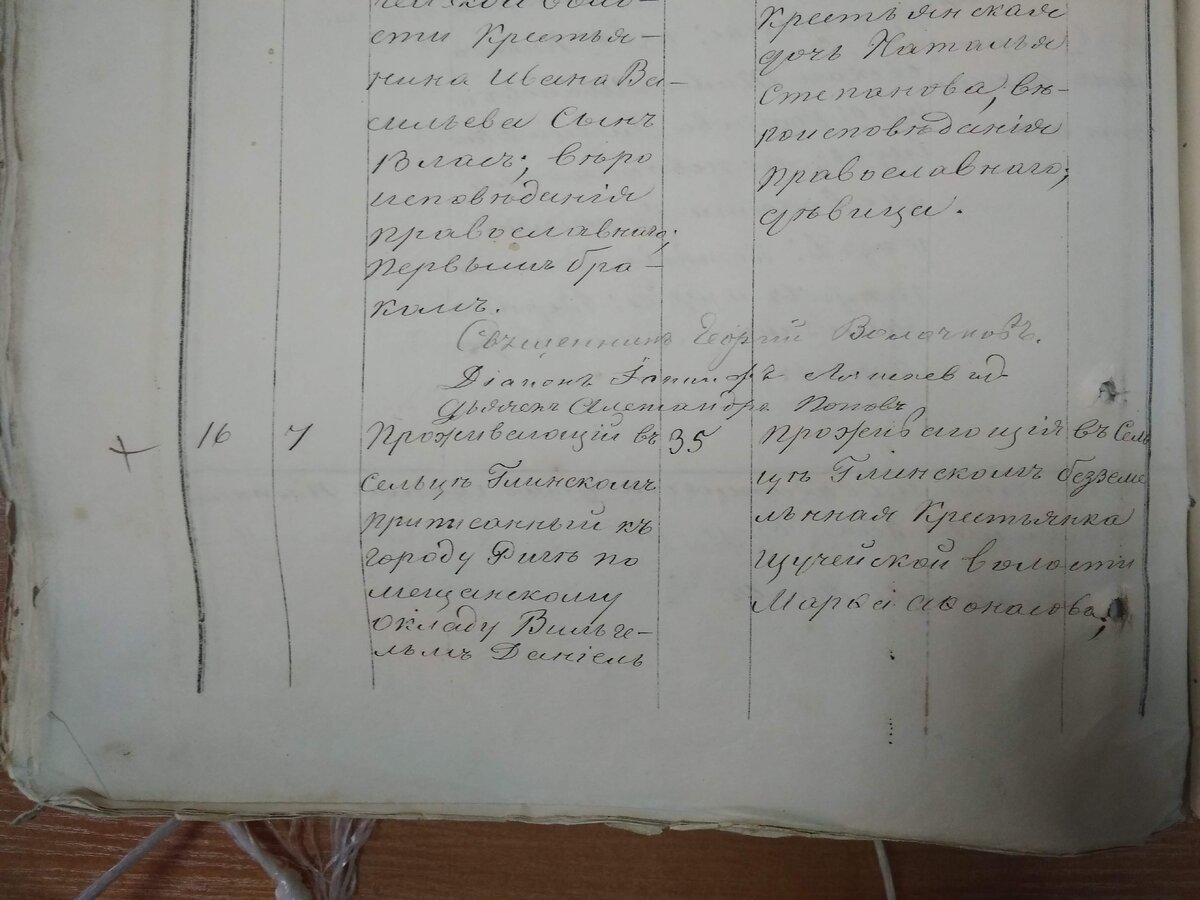 сти Крестья-
нина Ивана Ва-
сильева Сынъ
Власъ; вѣро
исповѣданія
православнаго;
первымъ бра-
комъ.
Крестьянская
дочь Наталья
Степанова, вѣ-
роисповѣданія
православнаго;
дѣвица.
Священникъ Георгій Волочковъ.
Діаконъ
дьячекъ Александръ Поповъ
16 7 Проживающій въ 35
сельцѣ Глинскомъ
приписанный къ
городу Ригѣ по
мещанскому
окладу Вильге-
льмъ Даніель
проживающія въ Сель
цѣ Глинскомъ безземе
льнная Крестьянка
Щучейской волости
Марѳа Аѳонасова;